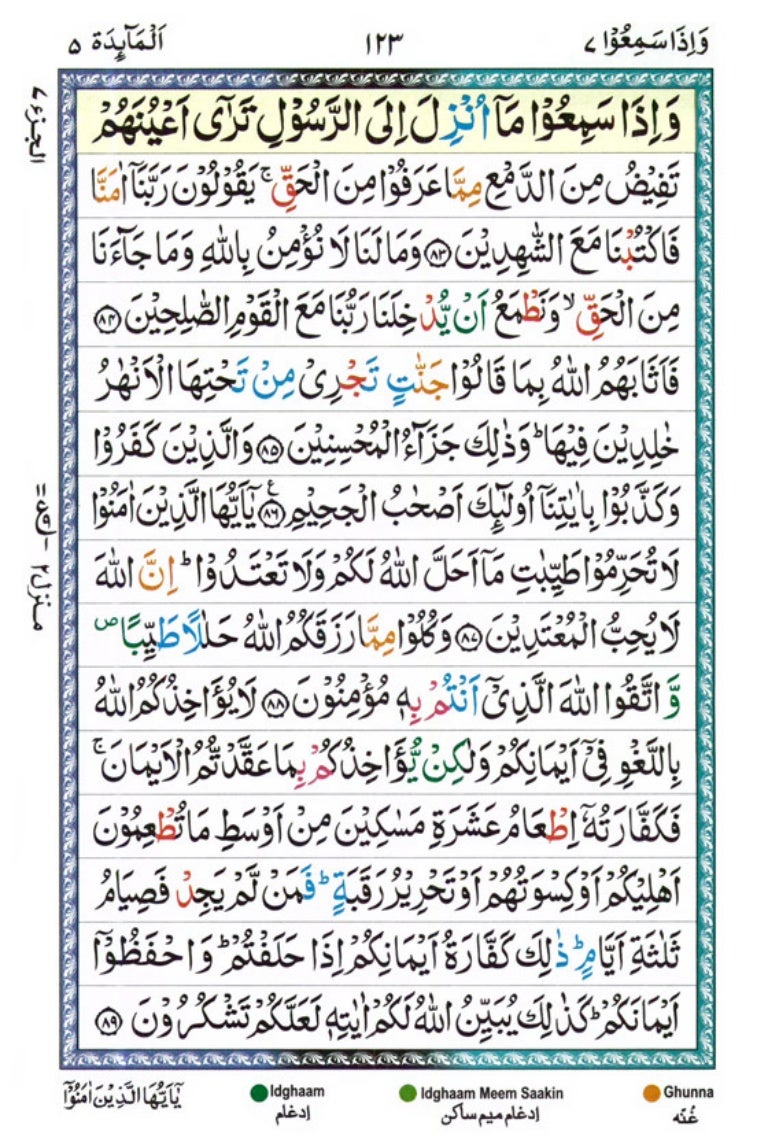 وَاِذَا سَمِعُوْا ٧
١٢٣
اَلْمَآىِٕدَة ٥
الجزء ٧
وَاِذَا سَمِعُوْا مَاۤ اُنْزِلَ اِلَى الرَّسُوْلِ تَرٰۤى اَعْيُنَهُمْ
تَفِيْضُ مِنَ الدَّمْعِ مِمَّا عَرَفُوْا مِنَ الْحَقِّ ۚ يَقُوْلُوْنَ رَبَّنَاۤ اٰمَنَّا
فَاكْتُبْنَا مَعَ الشّٰهِدِيْنَ ﴿٨٣﴾ وَمَا لَنَا لَا نُؤْمِنُ بِاللّٰهِ وَمَا جَآءَنَا
مِنَ الْحَقِّ ۙ وَنَطْمَعُ اَنْ يُّدْخِلَنَا رَبُّنَا مَعَ الْقَوْمِ الصّٰلِحِيْنَ ﴿٨٤﴾
فَاَثَابَهُمُ اللّٰهُ بِمَا قَالُوْا جَنّٰتٍ تَجْرِىْ مِنْ تَحْتِهَا الْاَنْهٰرُ
خٰلِدِيْنَ فِيْهَا ؕ وَذٰلِكَ جَزَآءُ الْمُحْسِنِيْنَ ﴿٨٥﴾ وَالَّذِيْنَ كَفَرُوْا
وَكَذَّبُوْا بِاٰيٰتِنَاۤ اُولٰٓىِٕكَ اَصْحٰبُ الْجَحِيْمِ ﴿٨٦﴾ ع يٰۤاَيُّهَا الَّذِيْنَ اٰمَنُوْا
لَا تُحَرِّمُوْا طَيِّبٰتِ مَاۤ اَحَلَّ اللّٰهُ لَكُمْ وَلَا تَعْتَدُوْا ؕ اِنَّ اللّٰهَ
لَا يُحِبُّ الْمُعْتَدِيْنَ ﴿٨٧﴾ وَكُلُوْا مِمَّا رَزَقَكُمُ اللّٰهُ حَلٰلًا طَيِّبًا ص
وَّاتَّقُوا اللّٰهَ الَّذِىْۤ اَنْتُمْ بِهٖ مُؤْمِنُوْنَ ﴿٨٨﴾ لَا يُؤَاخِذُكُمُ اللّٰهُ
بِاللَّغْوِ فِىْۤ اَيْمَانِكُمْ وَلٰكِنْ يُّؤَاخِذُكُمْ بِمَا عَقَّدْتُّمُ الْاَيْمَانَ ۚ
فَكَفَّارَتُهٗۤ اِطْعَامُ عَشَرَةِ مَسٰكِيْنَ مِنْ اَوْسَطِ مَا تُطْعِمُوْنَ
اَهْلِيْكُمْ اَوْ كِسْوَتُهُمْ اَوْ تَحْرِيْرُ رَقَبَةٍ ؕ فَمَنْ لَّمْ يَجِدْ فَصِيَامُ
ثَلٰثَةِ اَيَّامٍ ؕ ذٰلِكَ كَفَّارَةُ اَيْمَانِكُمْ اِذَا حَلَفْتُمْ ؕ وَاحْفَظُوْۤا
اَيْمَانَكُمْ ؕ كَذٰلِكَ يُبَيِّنُ اللّٰهُ لَكُمْ اٰيٰتِهٖ لَعَلَّكُمْ تَشْكُرُوْنَ ﴿٨٩﴾
منزل ٢
يٰۤاَيُّهَا الَّذِيْنَ اٰمَنُوْۤا
Idghaam
ادغام
Idghaam Meem Saakin
ادغام ميم ساكن
Ghunna
غُنّه